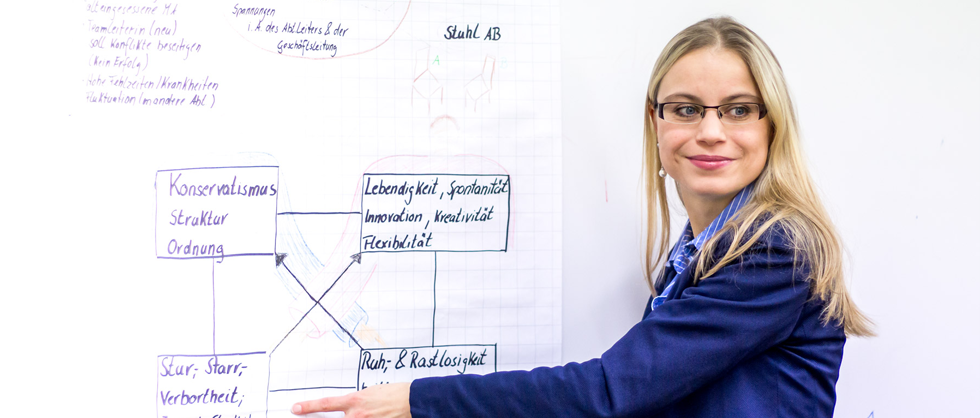 Teamleiterin (neu)
soll Konflikte beseitigen
(kein Erfolg)
hohe Fehlzeiten/Krankheiten
Fluktuation (in andere Abl)
Spannungen
i. A. des Abt.Leiters & der
Geschäftsleitung
Stuhl AB
A
Konservatismus
Struktur
Ordnung
Lebendigkeit, Spontanität
Innovation, Kreativität
Flexibilität
Stur,- Starr,-
Verbortheit,
Ruh,- & Rastlosigkeit